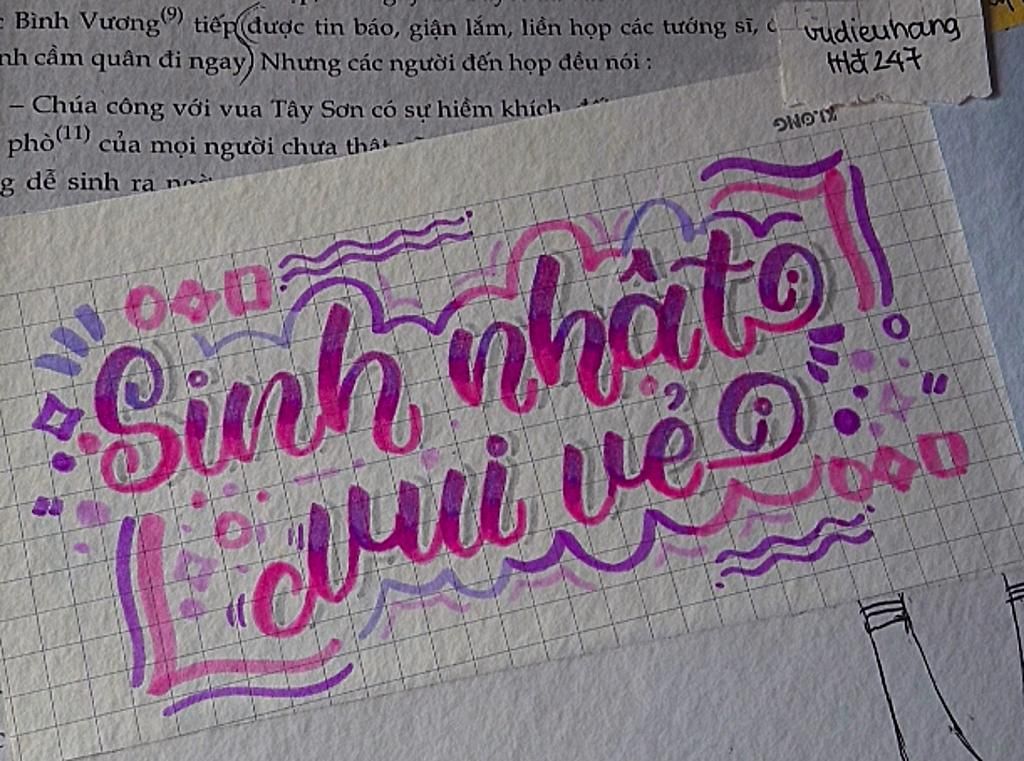 Bình Vương(9) tiếp được tin báo, giận lắm, liền họp các tướng sĩ,
cầm quân đi ngay) Nhưng các người đến họp đều nói :
– Chúa công với vua Tây Sơn có sự hiềm khích
phò(11) của mọi người chưa
dễ sinh ra
vudieuhang
Hđ 247
KLONG
Sinh nhật
vui vẻ